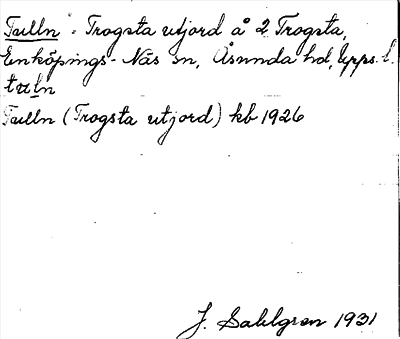 Tulln : Trogsta utjord å 2 Trogsta,
Enköpings-Näs sn, Åsunda hd, Upps. l.
tuln
Tulln (Trogsta utjord) kb 1926
J. Sahlgren 1931